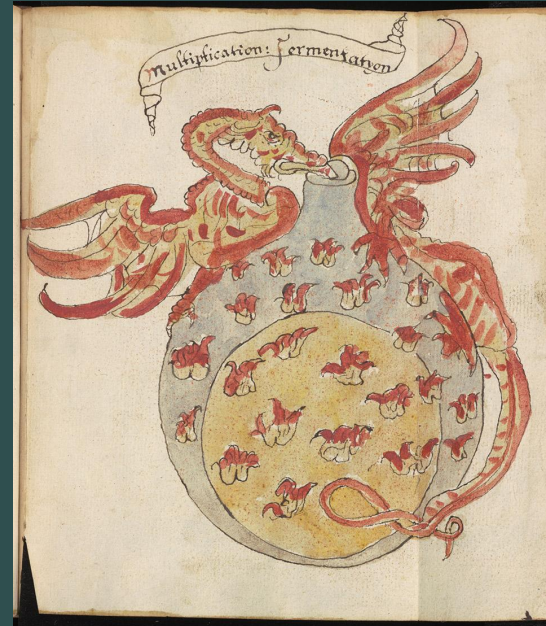 Multiplication: Fermentatyon